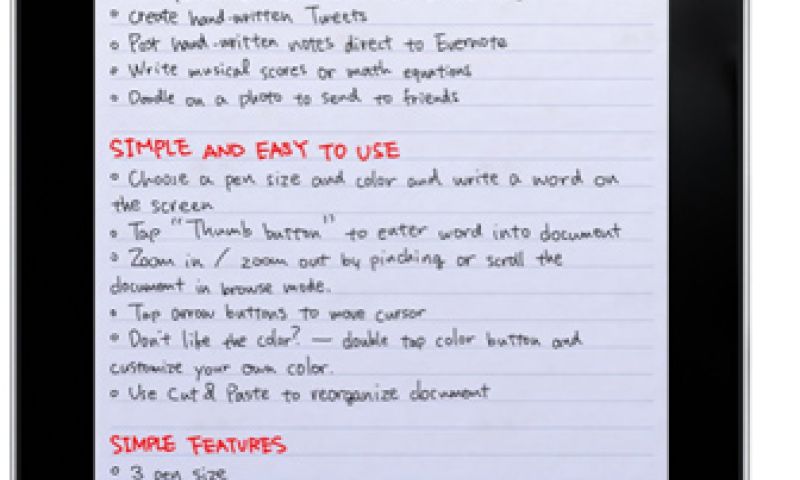 • Create hand-written Tweets
• Post hand-written notes direct to Evernote
• Write musical scores or math equations
• Doodle on a photo to send to friends
SIMPLE AND EASY TO USE
• Choose a pen size and color and write a word on
the screen
• Tap "Thumb button" to enter word into document
• Zoom in / zoom out by pinching or scroll the
document in browse mode.
• Tap arrow buttons to move cursor
• Don't like the color? — double tap color button and
customize your own color.
• Use Cut & Paste to reorganize document
SIMPLE FEATURES
• 3 pen size